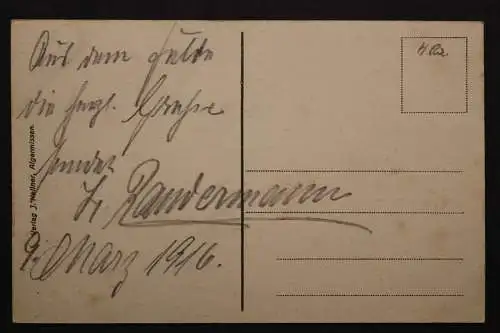 Aus dem Felde
die herzl. Grüße
sendet
Fr. Randermann
9. März 1916.
Verlag J. Wellner, Algermissen.